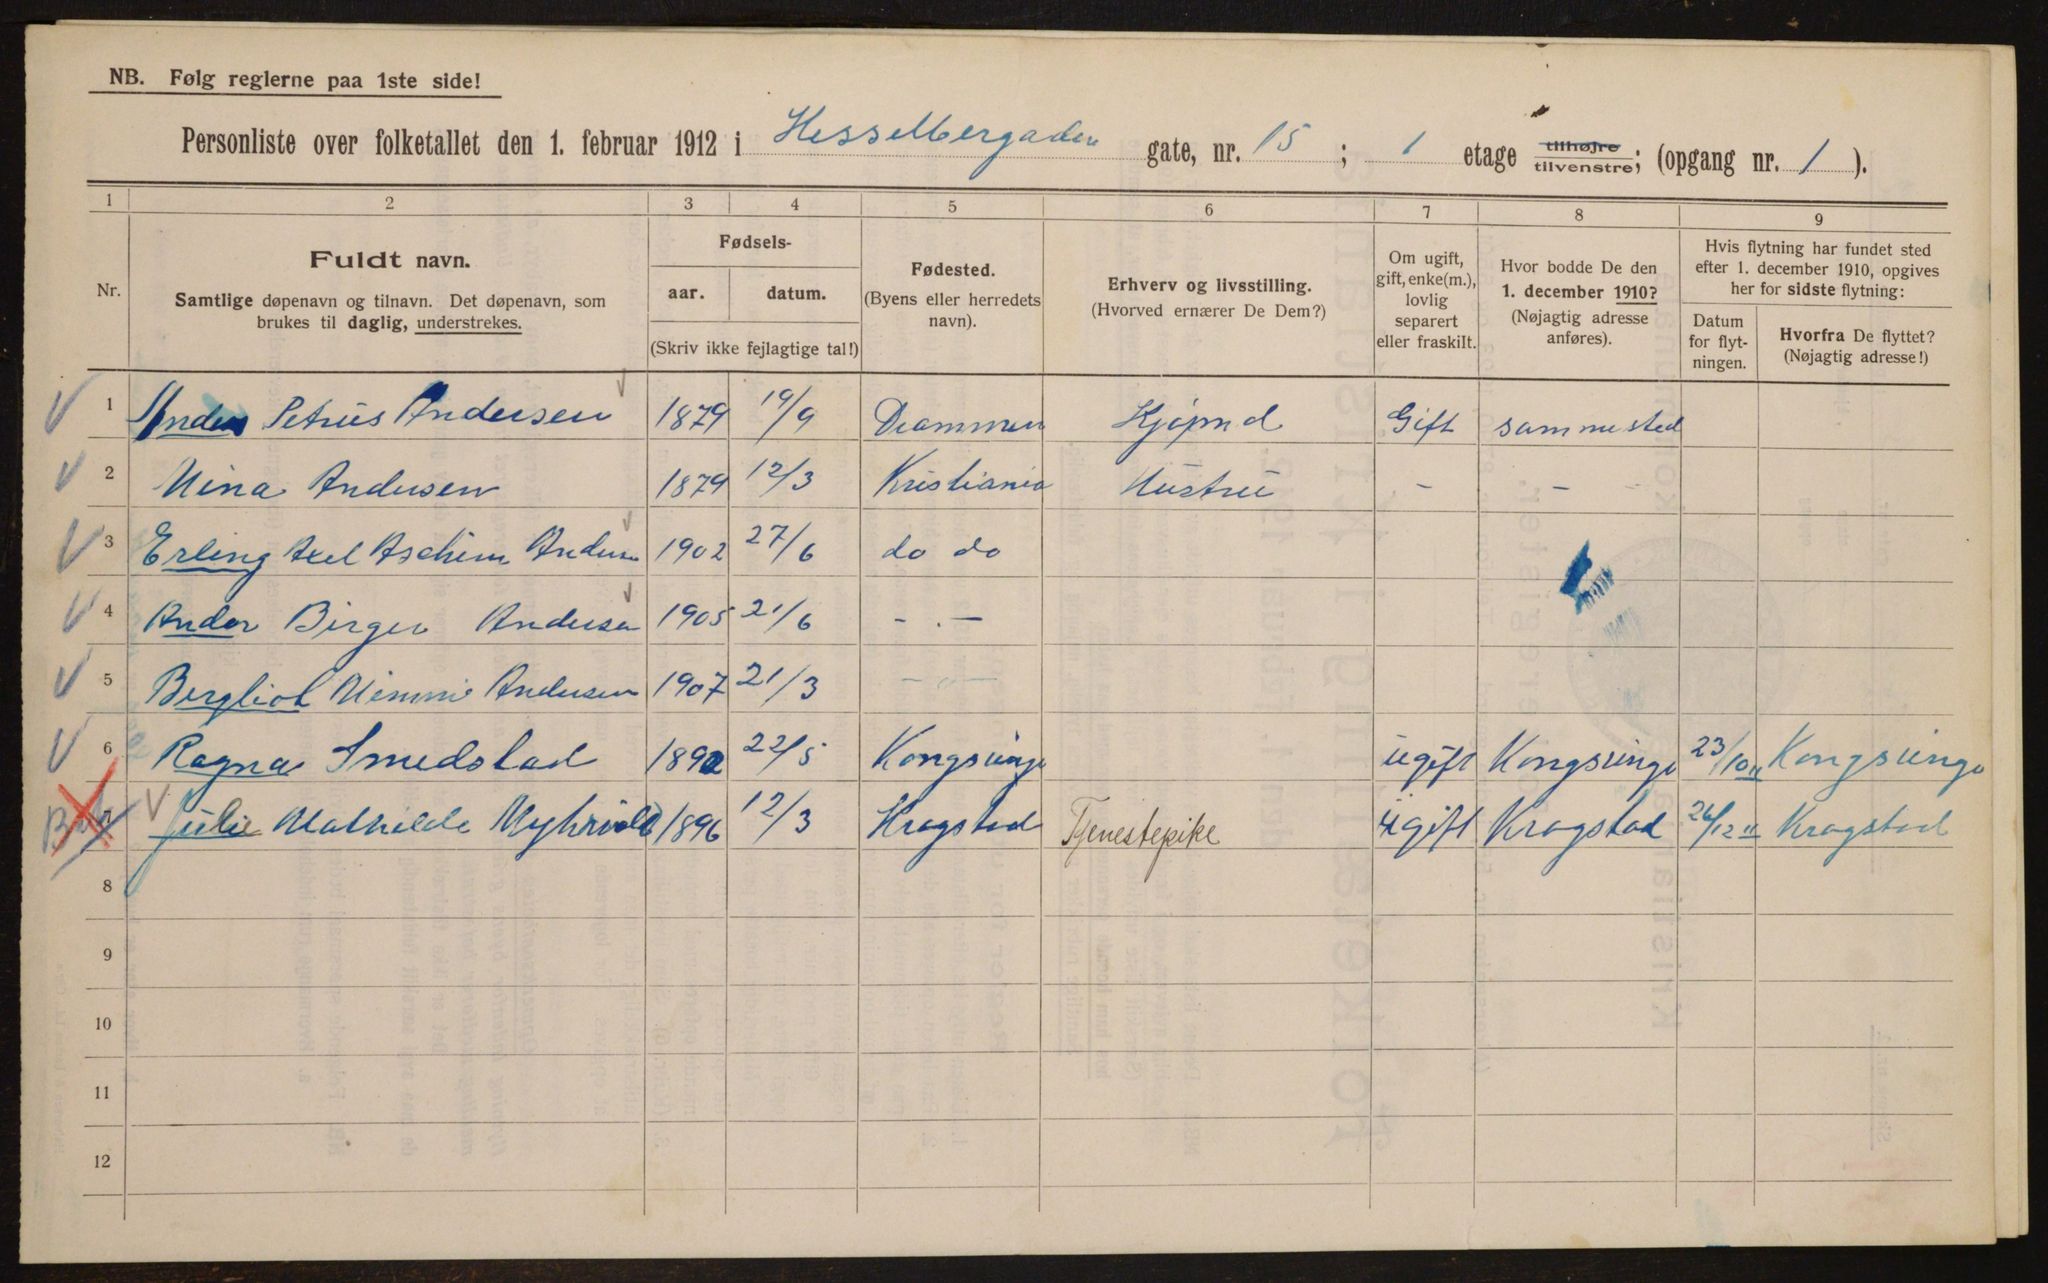 NB. Følg reglerne paa 1ste side!
Personliste over folketallet den 1. februar 1912 i Hesselbergaden gate, nr. 15 ; 1 etage tilhøjre tilvenstre; (opgang nr. 1 ).
1 2 3 4 5 6 7 8 9
Nr.
Fuldt navn.
Samtlige døpenavn og tilnavn. Det døpenavn, som
brukes til daglig, understrekes.
Fødsels-
aar. datum.
(Skriv ikke fejlagtige tal!)
Fødested.
(Byens eller herredets
navn).
Erhverv og livsstilling.
(Hvorved ernærer De Dem?)
Om ugift,
gift, enke(m.),
lovlig
separert
eller fraskilt.
Hvor bodde De den
1. december 1910?
(Nøjagtig adresse
anføres).
Hvis flytning har fundet sted
efter 1. december 1910, opgives
her for sidste flytning:
Datum
for flyt-
ningen.
Hvorfra De flyttet?
(Nøjagtig adresse!)
1 Anders Petrus Andersen 1879 19/9 Drammen Kjøpmd Gift sammested
2 Nina Andersen 1879 12/3 Kristiania Hustru - -
3 Erling Axel Aschim Andersen 1902 27/6 do do
4 Andor Birger Andersen 1905 21/6 - . -
5 Bergliot Mimmi Andersen 1907 21/3 - " -
6 Ragna Smedstad 1892 22/5 Kongsvinge ugift Kongsvinge 23/10 11 Kongsvinge
Julie Mathilde Myhrvold 1896 12/3 Kragstad Tjenestepike ugift Kragstad 26/12 11 Kragstad
8
9
10
11
12